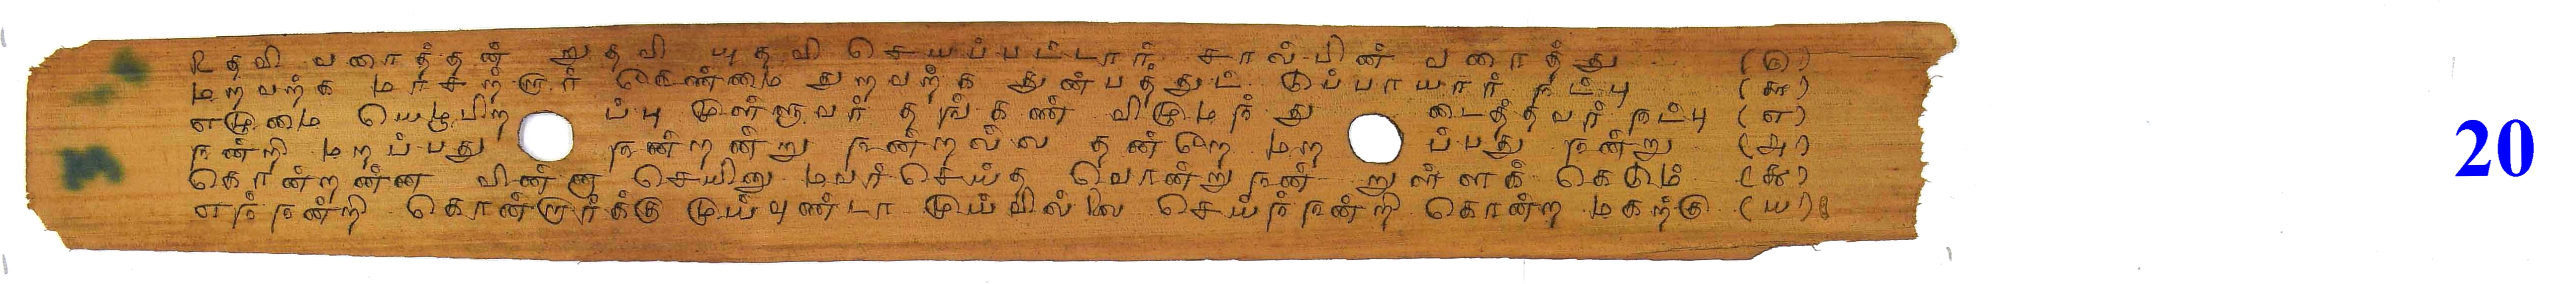 உதவி வரைத்தன் றுதவி யுதவி செயப்பட்டார் சால்பின் வரைத்து (௫)
மறவற்க மாசற்றார் கெண்மை துறவற்க துன்பத்துட் டுப்பாயார் நட்பு (௬)
எழுமை யெழுபிற ப்பு முன்ளுவர் தங்கண் விழுமந் து டைத்தவர் நட்பு (௭)
நன்றி மறப்பது நன்றன்று நன்றல்ல தன்றெ மற ப்பது நன்று (௮)
கொன்றன்ன வின்னா செயினு மவர்செய்த வொன்றுநன் றுள்ளக் கெடும் (௯)
எந்நன்றி கொன்றார்க்கு முய்வுண்டா முய்வில்லை செய்ந்நன்றி கொன்ற மகற்கு (௰)
20